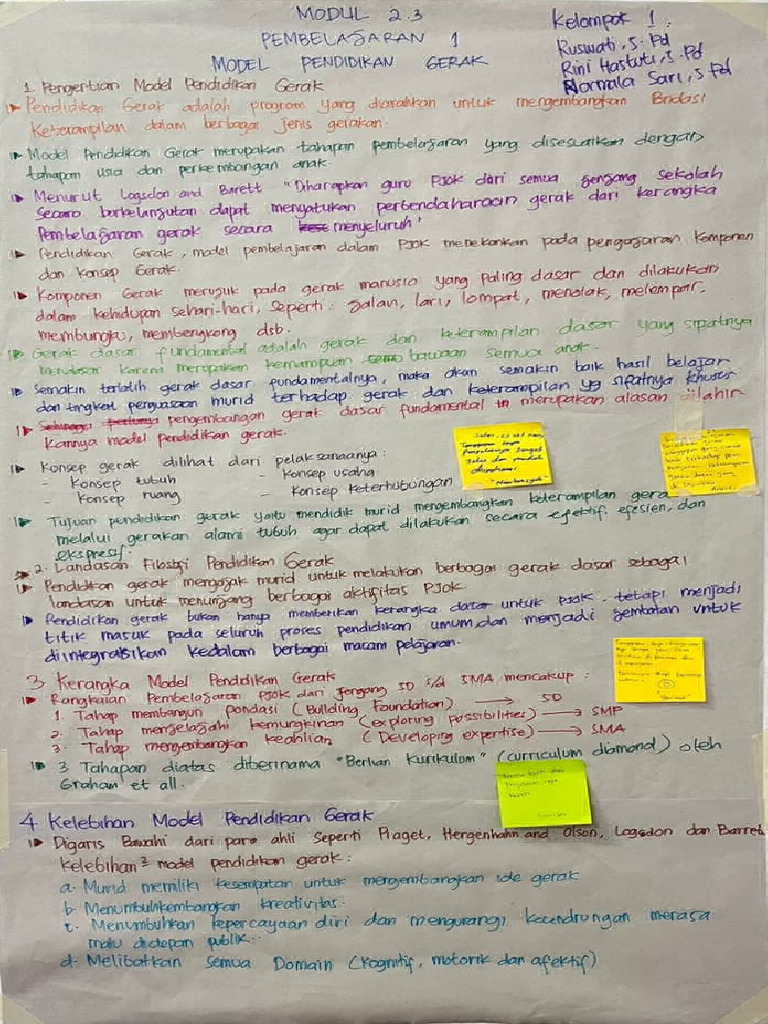 MODUL 2.3
PEMBELAJARAN 1
MODEL PENDIDIKAN GERAK
Kelompok 1 :
Ruswati, S.Pd
Rini Hastuti, S.Pd
Normala Sari, S.Pd
1. Pengertian Model Pendidikan Gerak
Pendidikan Gerak adalah program yang diarahkan untuk mengembangkan
Keterampilan dalam berbagai jenis gerakan.
Model Pendidikan Gerak merupakan tahapan pembelajaran yang disesuaikan dengan
tahapan usia dan perkembangan anak.
Menurut Logsdon and Barett "Diharapkan guru PJOK dari semua jenjang sekolah
Secara berkelanjutan dapat menyatukan perbendaharaan gerak dari kerangka
Pembelajaran gerak secara menyeluruh"
Pendidikan Gerak, model pembelajaran dalam PJOK menekankan pada pengajaran Komponen
dan Konsep Gerak.
Komponen Gerak merujuk pada gerak manusia yang paling dasar dan dilakukan
dalam kehidupan sehari-hari, seperti : Jalan, lari, lompat, menolak, melempar,
membungku, membengkong dsb.
Gerak dasar fundamental adalah gerak dan keterampilan dasar yang sipatnya
mendasar karena merupakan kemampuan bawaan semua anak.
Semakin terlatih gerak dasar fundamentalnya, maka akan semakin baik hasil belajar
dan tingkat penguasaan murid terhadap gerak dan keterampilan yg sifatnya khusus
Sehingga perlunya pengembangan gerak dasar fundamental merupakan alasan dilahir
kannya model pendidikan gerak.
Konsep gerak dilihat dari pelaksanaanya :
- Konsep tubuh - Konsep usaha
- Konsep ruang - Konsep keterhubungan
Tujuan pendidikan gerak yaitu mendidik murid mengembangkan keterampilan gerak
melalui gerakan alami tubuh agar dapat dilakukan secara efektif, efesien, dan
ekspresif.
2. Landasan Filosofi Pendidikan Gerak
Pendidikan gerak mengajak murid untuk melakukan berbagai gerak dasar sebagai
landasan untuk menunjang berbagai aktifitas PJOK
Pendidikan gerak bukan hanya memberikan kerangka dasar untuk PJOK, tetapi menjadi
titik masuk pada seluruh proses pendidikan umum dan menjadi jembatan untuk
diintegrasikan kedalam berbagai macam pelajaran.
3. Kerangka Model Pendidikan Gerak
Rangkaian Pembelajaran PJOK dari jenjang SD s/d SMA mencakup :
1. Tahap membangun pondasi (Building Foundation) → SD
2. Tahap menjelajahi kemungkinan (exploring possibilities) → SMP
3. Tahap mengembangkan keahlian (Developing expertise) → SMA
3 Tahapan diatas diberinama "Berlian Kurikulum" (curriculum diamond) oleh
Graham et all.
4 Kelebihan Model Pendidikan Gerak
Digaris Bawahi dari para ahli seperti Piaget, Hergenhahn and Olson, Logsdon dan Barret
Kelebihan² model pendidikan gerak :
a. Murid memiliki kesempatan untuk mengembangkan ide gerak
b. Menumbuhkembangkan kreativitas.
c. Menumbuhkan kepercayaan diri dan mengurangi kecendrungan merasa
malu didepan publik.
d. Melibatkan semua Domain (Kognitif, motorik dan afektif)